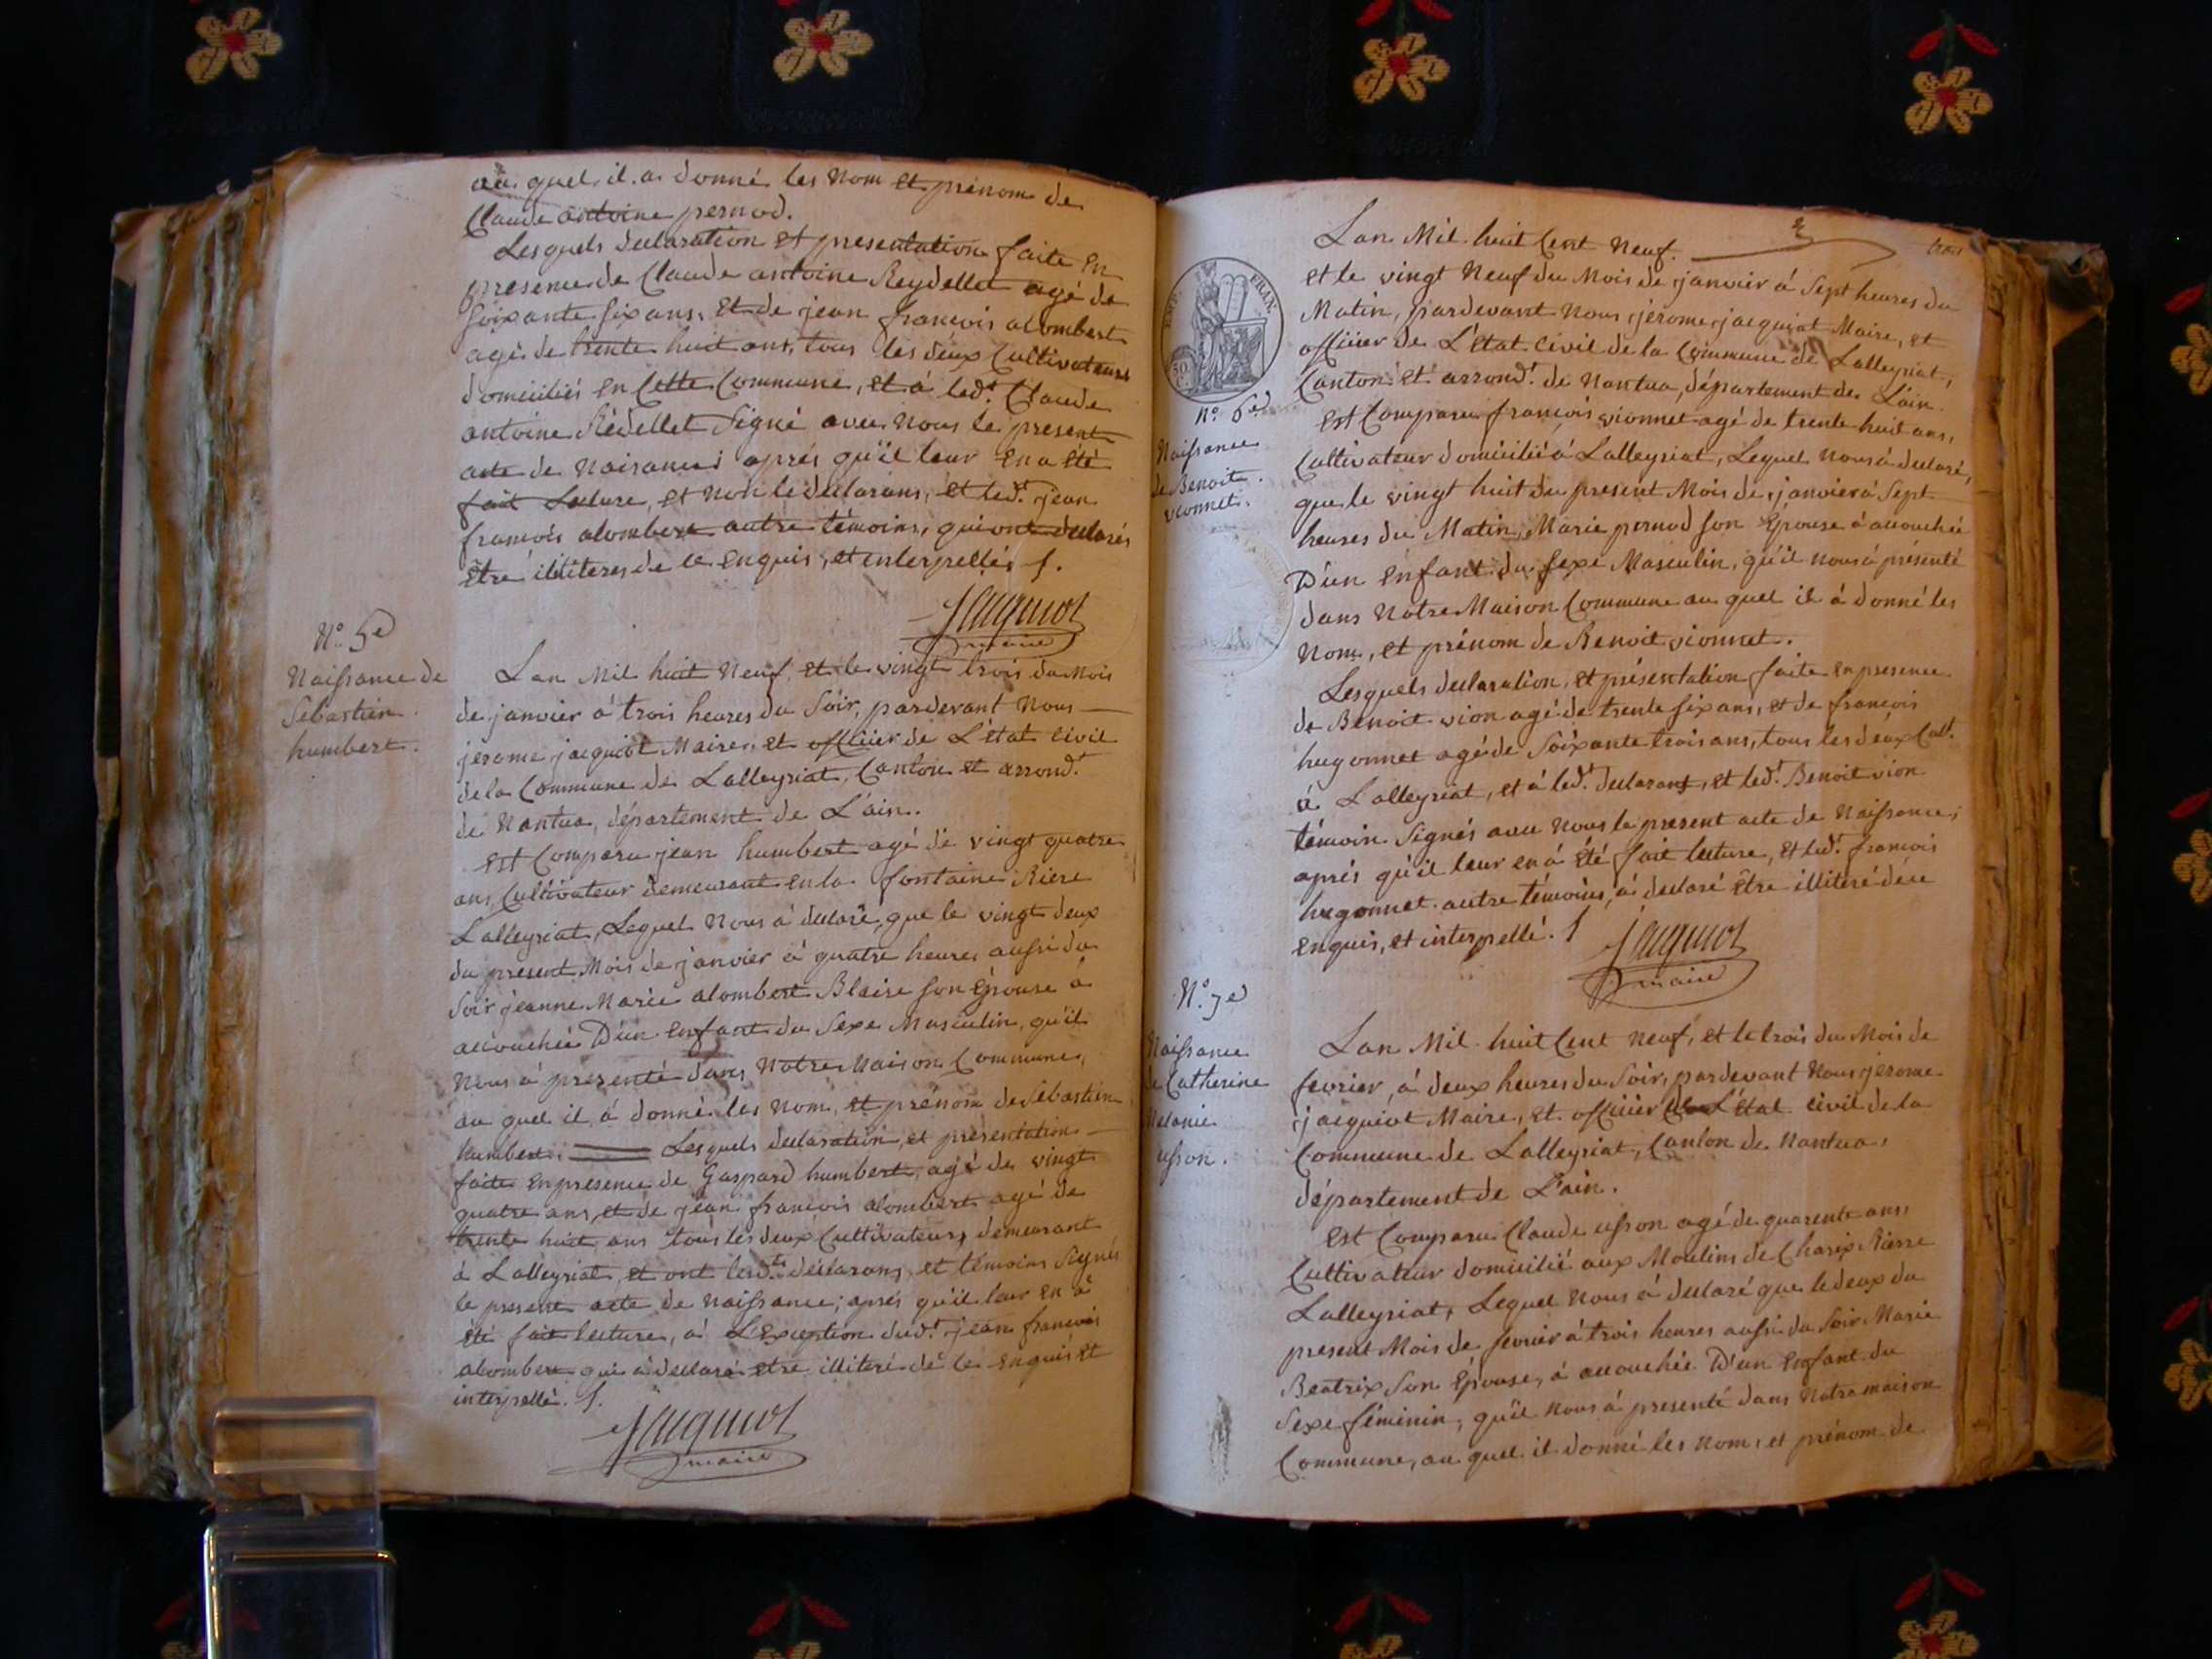 au quel il a donné les nom et prénom de
Claude antoine pernod.
Lesquels declaration et presentation faite en
presence de Claude antoine Reydellet agé de
soixante six ans, et de jean francois alombert
agé de trente huit ans, tous les deux Cultivateurs
domiciliés en Cette Commune, et à led.t Claude
antoine Rédellet Signé avec nous le present
acte de naisance; aprés qu'il leur en a été
fait Lecture, et non le declarans, et led.t jean
francois alombert autre témoins, qui ont declarés
être illiteres de ce enquis, et interpellés
Jacquiot
maire
N.o 5e
Naissance de
Sébastien
humbert.
Lan Mil huit Neuf, et le vingt trois du Mois
de janvier à trois heures du Soir, pardevant Nous
jerome jacquiot Maire, et officier de L'état Civil
de la Commune de Lalleyriat, Canton et arrond.t
de Nantua, département de L'ain.
Est Comparu jean humbert agé de vingt quatre
ans, Cultivateur demeurant en la fontaine Riere
Lalleyriat, Lequel Nous à declaré, que le vingt deux
du present Mois de janvier à quatre heures aussi du
Soir jeanne Marie alombert Blaise son Epouse à
accouchée D'un enfant du Sexe Masculin, qu'il
Nous à presenté dans Notre Maison Commune,
au quel il à donné les nom, et prénom de Sébastien
humbert. Lesquels declaration, et présentation
faite en presence de Gaspard humbert, agé de vingt
quatre ans, et de jean francois alombert agé de
trente huit ans tous les deux Cultivateurs, demeurant
à Lalleyriat, et ont lesd.ts declarans, et témoins Signés
le present acte de naissance; aprés qu'il leur en à
été fait lecture, à L'exception dud.t jean francois
alombert qui à declaré etre illiteré de ce enquis et
interpellé.
Jacquiot
maire
Lan Mil huit Cent Neuf.
et le vingt Neuf du Mois de janvier à Sept heures du
Matin, pardevant Nous jerome jacquiot Maire, et
officier de L'état Civil de la Commune de Lalleyriat,
Canton et arrond.t de Nantua, département de L'ain.
EMP. FRAN.
50 C.
N.o 6e
Naissance
de Benoit
vionnet.
Est Comparu francois vionnet agé de trente huit ans,
Cultivateur domicilié à Lalleyriat, Lequel nous à declaré,
que le vingt huit du present Mois de janvier à Sept
heures du Matin, Marie pernod son Epouse à accouchée
D'un enfant du sexe Masculin, qu'il nous à présenté
dans Notre Maison Commune au quel il à donné les
Nom, et prénom de Benoit vionnet.
Lesquels declaration, et présentation faite en presence
de Benoit vion agé de trente six ans, et de francois
hugonnet agé de Soixante trois ans, tous les deux Cult.
à Lalleyriat, et à led.t declarant, et led.t Benoit vion
témoin Signés avec nous le present acte de Naissance;
aprés qu'il leur en à été fait lecture, et led.t francois
hugonnet autre témoins, à declaré être illiteré de ce
enquis, et interpellé.
Jacquiot
maire
N.o 7e
Naissance
de Catherine
Melanie
usson.
Lan Mil huit Cent Neuf, et le trois du Mois de
fevrier, à deux heures du Soir, pardevant Nous jerome
jacquiot Maire, et officier de L'état civil de la
Commune de Lalleyriat, Canton de Nantua,
département de L'ain.
Est Comparu Claude usson agé de quarente ans,
Cultivateur domicilié aux Moulins de Charix Rierre
Lalleyriat, Lequel Nous à declaré que le deux du
present Mois de fevrier à trois heures aussi du Soir Marie
Beatrix Son Epouse, à accouchée D'un enfant du
Sexe féminin, qu'il nous à presenté dans Notre maison
Commune, au quel il donné les nom, et prénom de